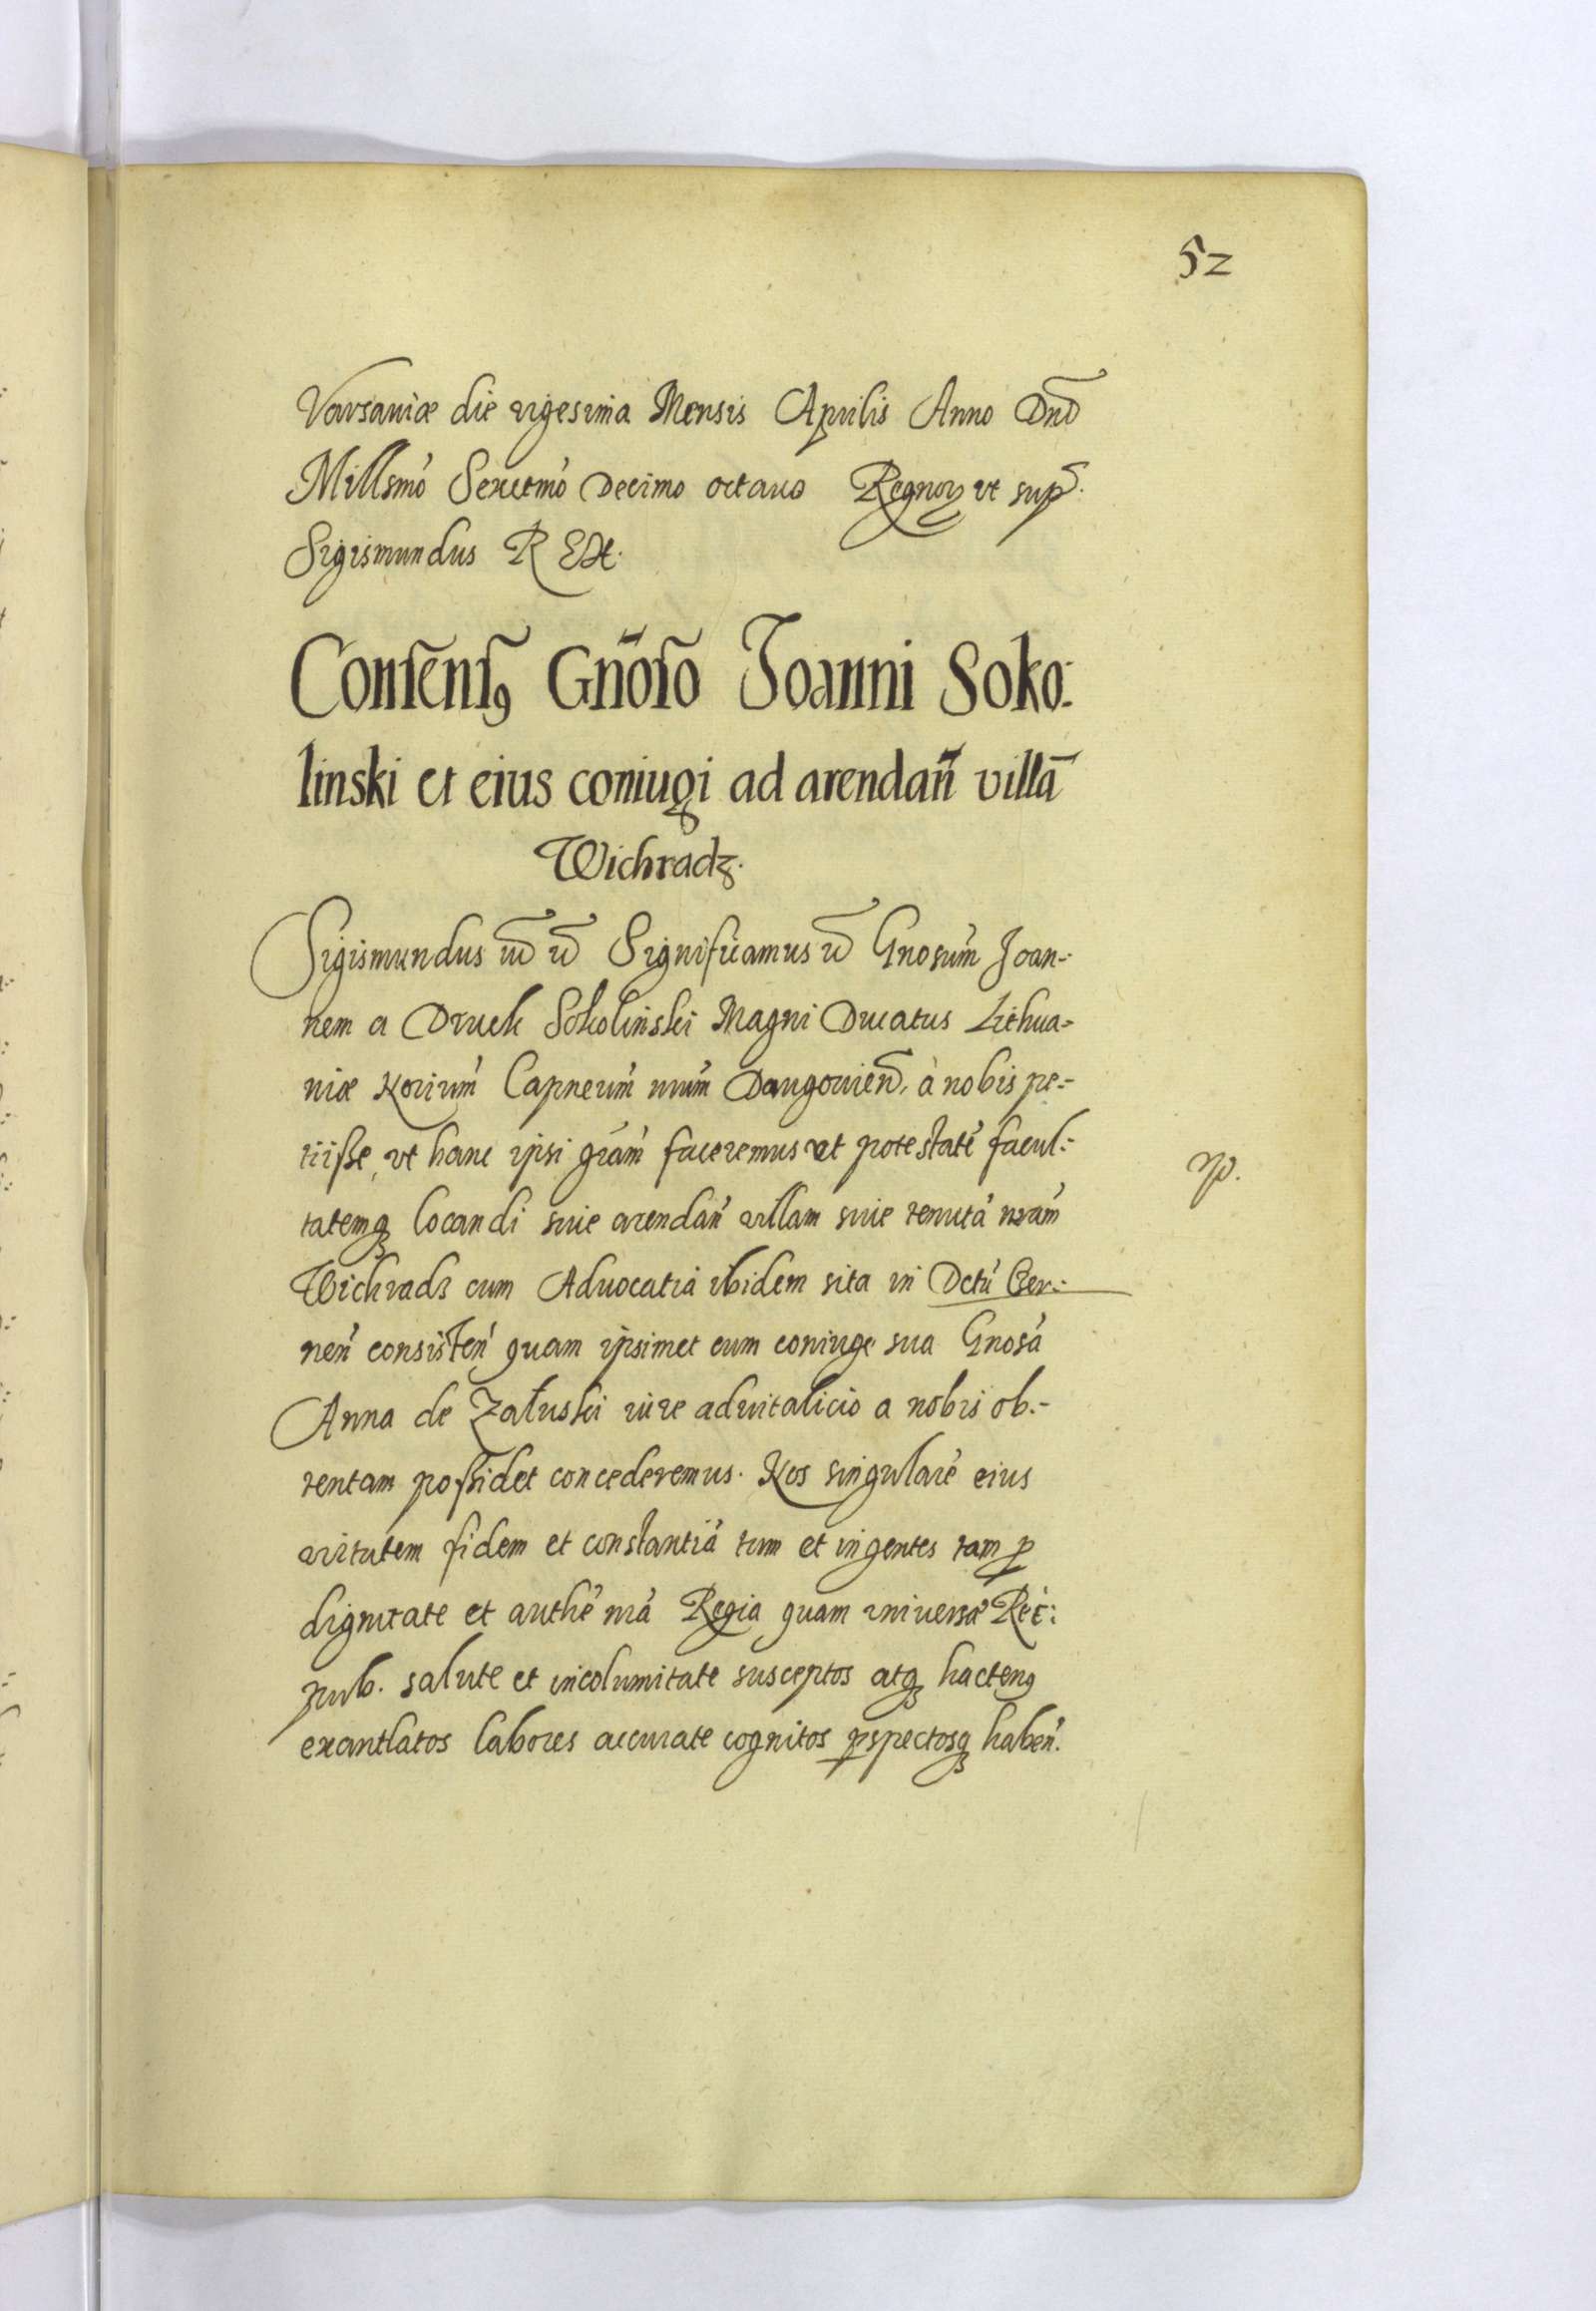 52
Varsaviæ die vigesima Mensis Aprilis Anno Dnĩ
Millsmo' Sexctmo' Decimo octauo Regnorꝝ vt sup.
Sigismundus REX.
Consensꝰ Gñoso Joanni Soko:
linski et eius coniugi ad arendañ villã
Wichradz.
Sigismundus Significamus Gnosum' Joan-
nem a Druck Sokolinski Magni Ducatus Lithua-
niæ Capneum' Daugouien̄. à nobis pe-
tiisse, vt hanc ipsi gra'm faceremus et potestate' facul:
tatemqꝫ locandi siue arendan' villam siue tenuta' nram'
Wichradz cum Aduocatia ibidem sita in Dctu' Czer:
nen' consisten' quam ipsimet cum coniuge sua Gnosa'
Anna de Załuski iure aduitalicio a nobis ob-
tentam possidet concederemus. Nos singulare' eius
virtutem fidem et constantia' tum et ingentes tam ꝑ
dignitate et authe' nra' Regia quam vniuersæ Rei:
pub. salute et incolumitate susceptos atqꝫ hactenꝰ
exantlatos labores accurate cognitos ꝑspectosqꝫ haben'.